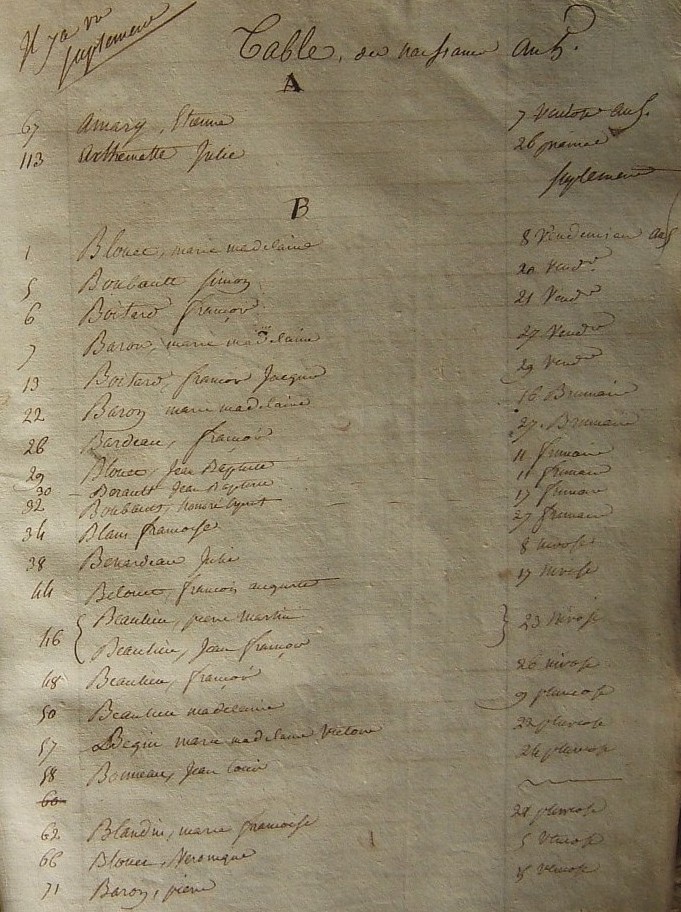 Il y a un
suplement
Table, de naissance an 5.
A
67 Amary, Etienne 7 Ventose an 5.
113 Arthemette Julie 26 prairial
suplement
B
1 Blouet, marie madelaine 8 Vendemiaire an 5
5 Boubault simon 20 Vendre
6 Boitard françois 21 Vendre
7 Baron, marie madelaine 27 Vendre
13 Boitard, françois Jacque 29 Vendre
22 Baron marie madelaine 16 Brumaire
26 Bardeau, françois 27 Brumaire
29 Blouet, Jean Baptiste 11 frimaire
30 Borault Jean Baptiste 11 frimaire
32 Boubault, honoré 17 frimaire
34 Blain françoise 27 frimaire
38 Benardeau Julie 8 nivose
44 Belouet, françois auguste 17 nivose
46 Beaulieu, pierre martin 23 nivose
Beaulieu, Jean françois
48 Beaulieu, françois 26 nivose
50 Beaulieu madelaine 9 pluviose
57 Begin marie madelaine Victoire 22 pluviose
58 Bonneau, Jean Louis 24 pluviose
60
62 Blandin, marie françoise 28 pluviose
66 Blouet, Veronique 5 Ventose
71 Baron, pierre 15 Ventose